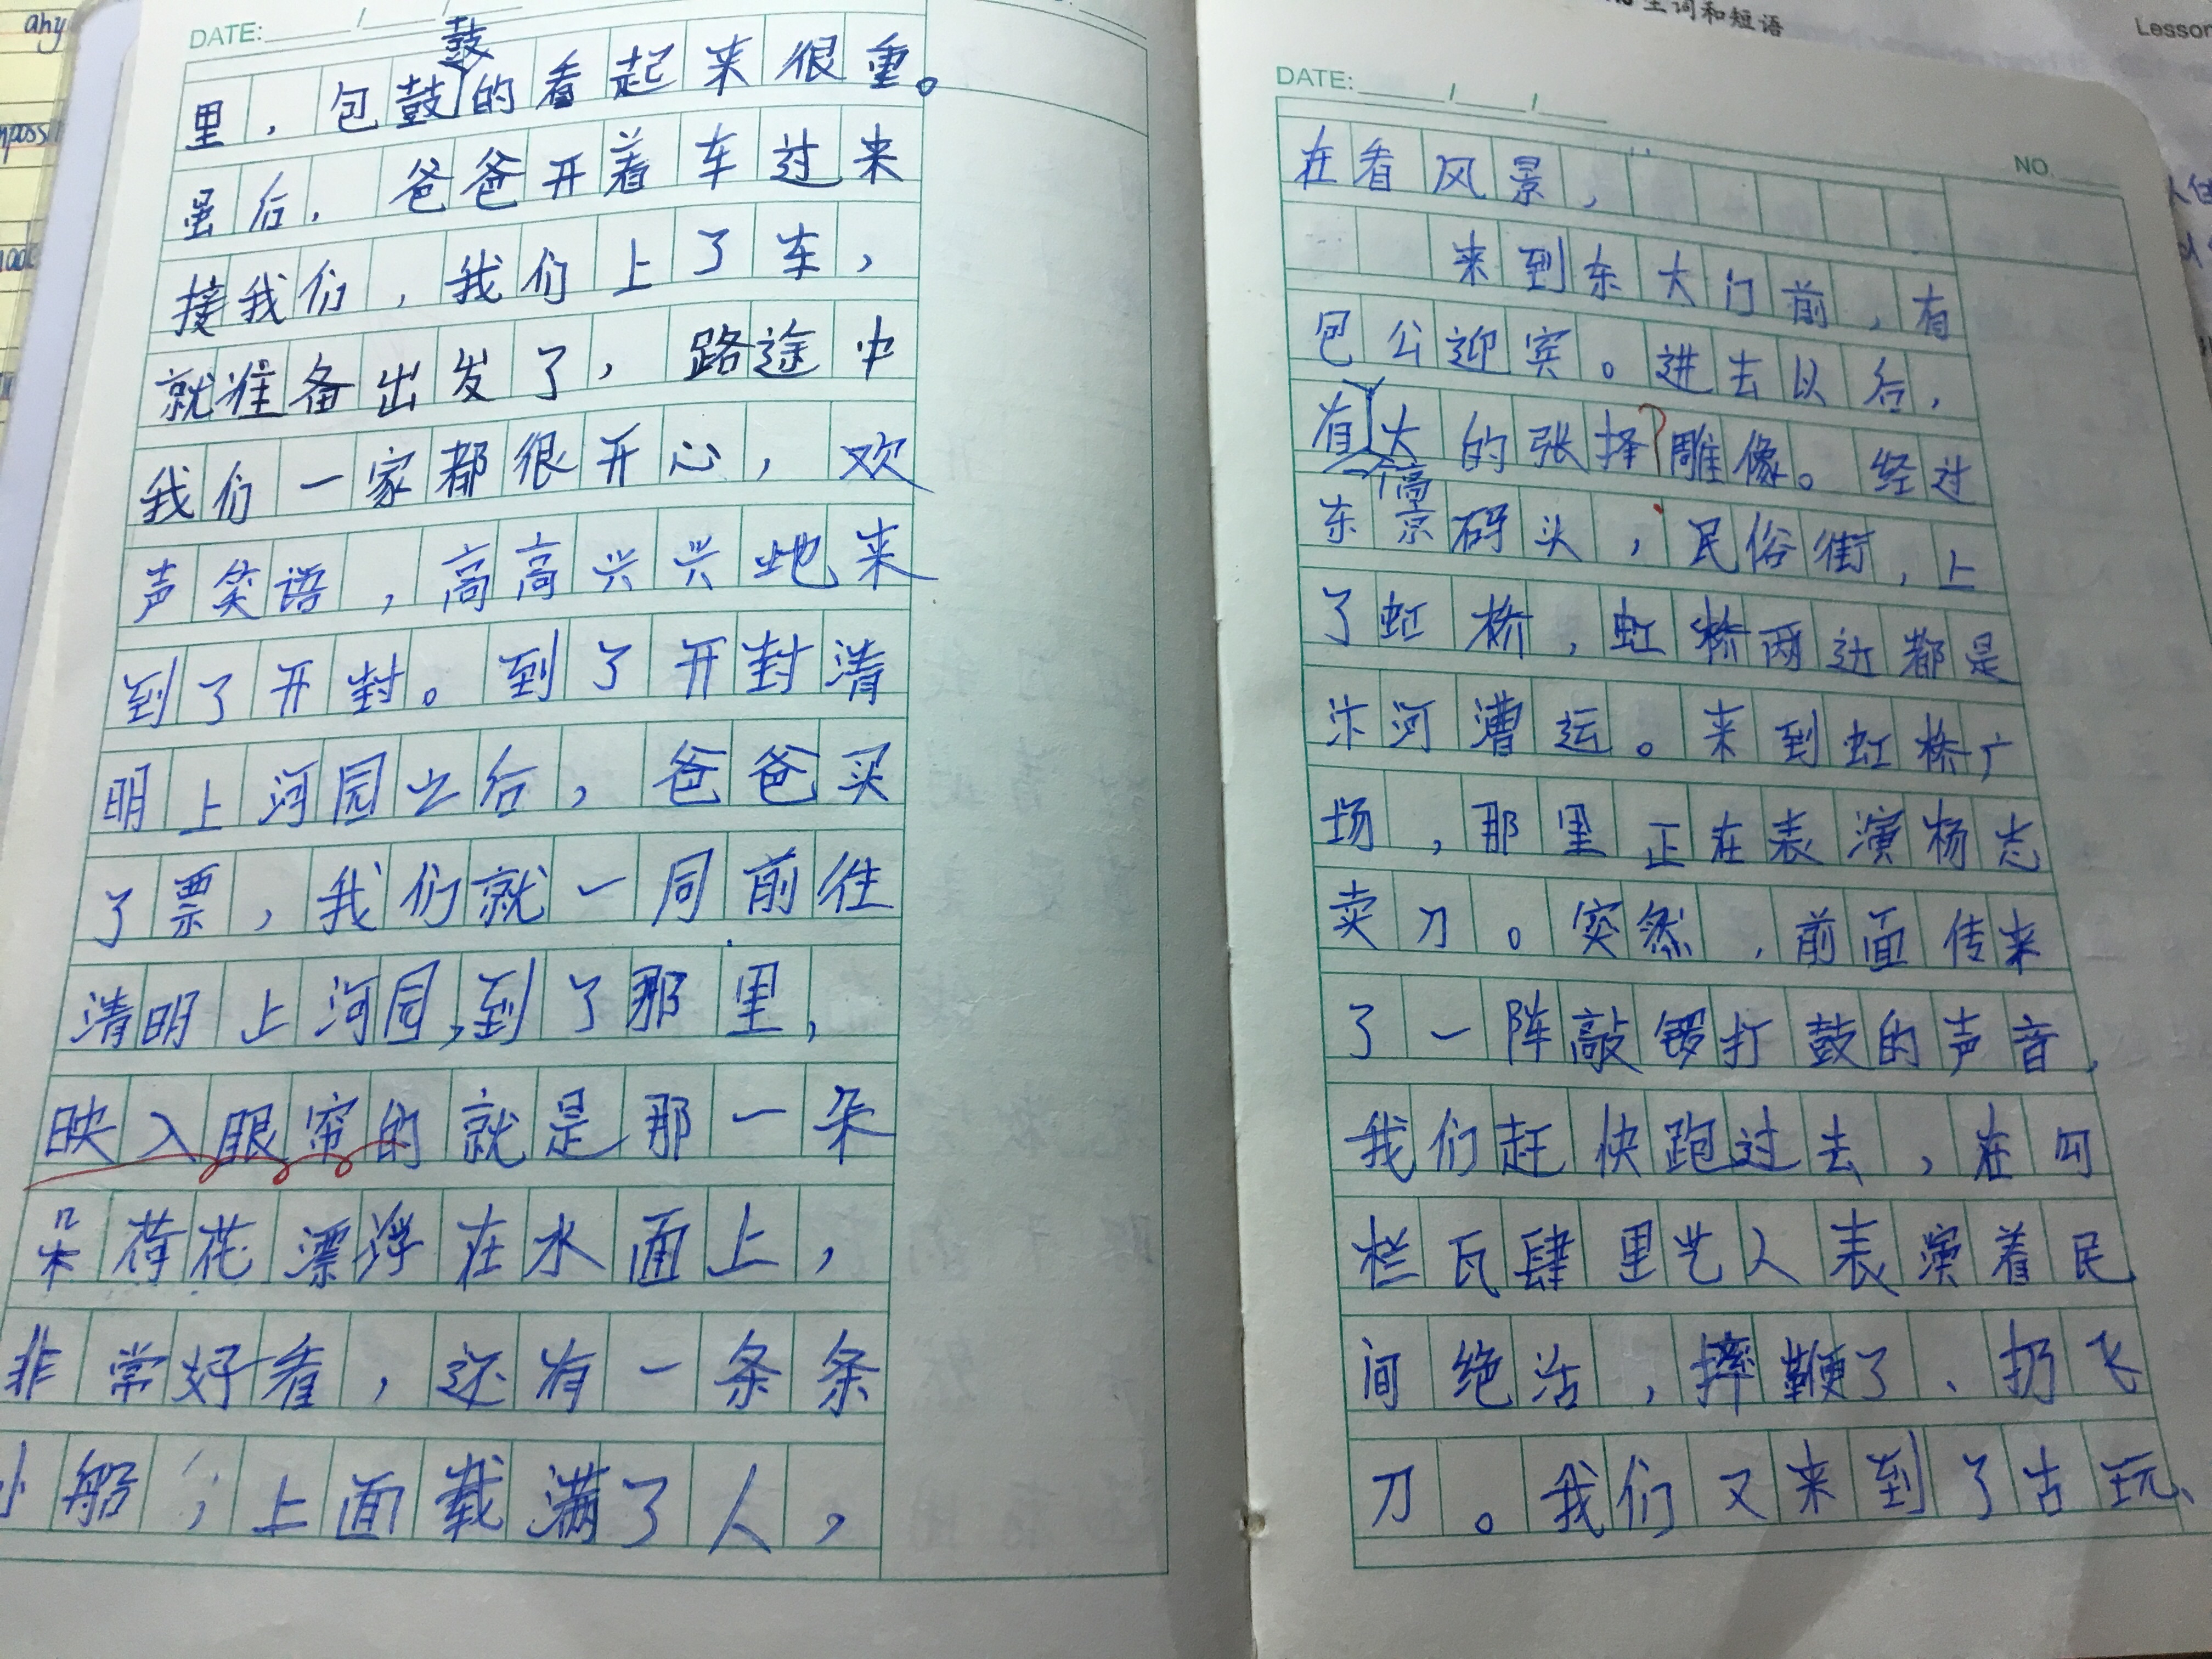 DATE:
里，包鼓鼓的看起来很重。
虽后，爸爸开着车过来
接我们，我们上了车，
就准备出发了，路途中
我们一家都很开心，欢
声笑语，高高兴兴地来
到了开封。到了开封清
明上河园之后，爸爸买
了票，我们就一同前往
清明上河园,到了那里，
映入眼帘的就是那一朵
朵荷花漂浮在水面上，
非常好看，还有一条条
小船，上面载满了人，
生词和短语
Lesson
DATE:
NO.
在看风景，
来到东大门前，有
包公迎宾。进去以后，
有个高大的张择?雕像。经过
东京码头，民俗街，上
了虹桥，虹桥两边都是
汴河漕运。来到虹桥广
场，那里正在表演杨志
卖刀。突然，前面传来
了一阵敲锣打鼓的声音，
我们赶快跑过去，在勾
栏瓦肆里艺人表演着民
间绝活，摔鞭了、扔飞
刀。我们又来到了古玩、
any